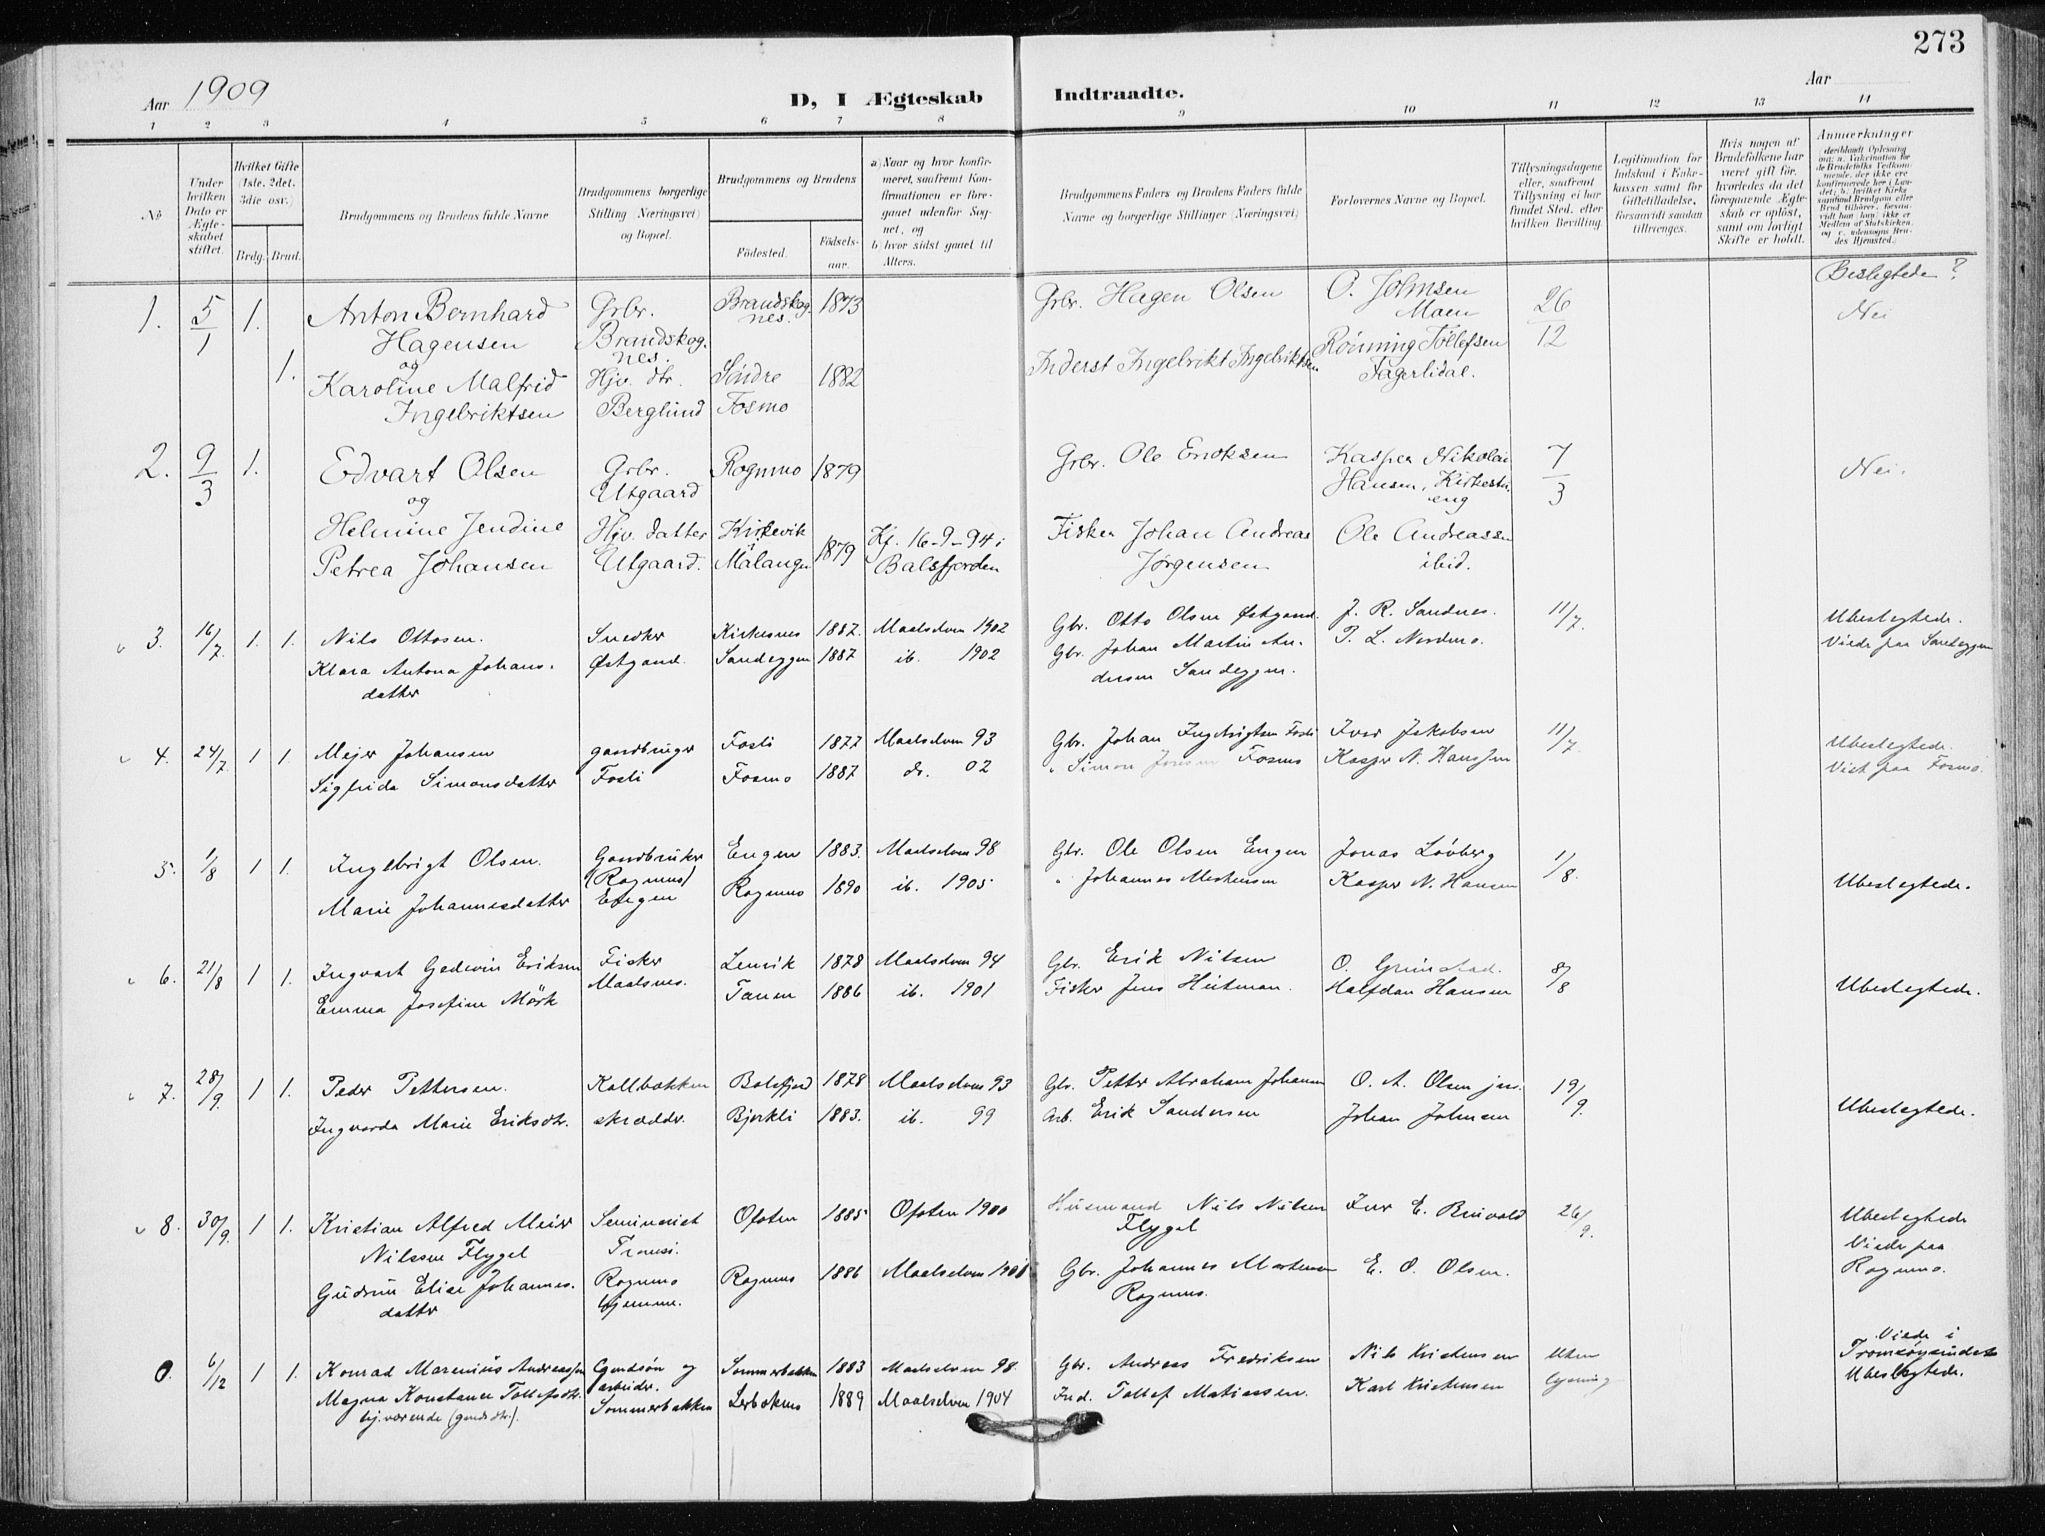 273
Aar 1909
D, I Ægteskab Indtraadte.
Aar
1 2 3 4 5 6 7 8 9 10 11 12 13 14
No.
Under hvilken Dato er Ægteskabet stiftet.
Hvilket Gifte (1ste, 2det, 3die osv.)
Brdg. Brud.
Brudgommens og Brudens fulde Navne
Brudgommens borgerlige Stilling (Næringsvei) og Bopæl.
Brudgommens og Brudens
Fødested.
Fødselsaar.
a) Naar og hvor konfirmeret, saafremt Konfirmationen er foregaaet udenfor Sognet, og
b) hvor sidst gaaet til Alters.
Brudgommens Faders og Brudens Faders fulde Navne og borgerlige Stillinger (Næringsvei)
Forlovernes Navne og Bopæl.
Tillysningsdagene eller, saafremt Tillysning ei har fundet Sted, efter hvilken Bevilling.
Legitimation for Indskud i Enkekassen samt for Giftetilladelse, forsaavidt saadan tiltrænges.
Hvis nogen af Brudefolkene har været gift før, hvorledes da det foregaaende Ægteskab er opløst, samt om lovligt Skifte er holdt.
Anmærkninger (deriblandt Oplysning om: a. Vakcination for de Brudefolks Vedkommende, der ikke ere konfirmerede her i Landet; b. hvilket Kirkesamfund Brudgom eller Brud tilhører, forsaavidt han (hun) ikke er Medlem af Statskirken, og c. udensogns Brudes Hjemsted.)
Beslegtede?
1. 5/1 1. Anton Bernhard Grbr. Brandskog- 1873 Grbr. Hagen Olsen O. Johnsen 26/12 Nei
Hagensen Brandskog- nes. Moen
og nes. Rønning Tollefsen
1. Karoline Malfrid Hjv. dtr. Søndre 1882 Inderst Ingebrikt Ingebriktsen Fagerlidal.
Ingebriktsen Berglund Fosmo
2. 9/3 1. Edvart Olsen Grbr. Rognmo 1879 Grbr. Ole Eriksen Kasper Nikolai 7/3 Nei.
og Utgaard Hansen, Kirkes
eng
Helmine Jendine Hjv. datter Kirkevik 1879 Kf. 16-9-94 i Fisker Johan Andreas Ole Andreassen
Petrea Johansen Utgaard. Målangen Balsfjorden Jørgensen ibid.
3. 16/7 1. 1. Nils Ottosen. Snedker Kirkesnes 1887. Maalselven 1902 Gbr. Otto Olsen Østgaard. J. R. Sandnes. 11/7. Ubeslegtede.
Klara Antona Johans- Østgaard. Sandeggen 1887 ib. 1902 Gbr. Johan Martin An- P. L. Nordmo. Viede paa Sandeggen
datter dersen Sandeggen.
4. 24/7 1 1. Mejer Johansen gaardbruger Fosli 1877 Maalselven 93 Gbr. Johan Ingebrigtsen Fosli Iver Jakobsen 11/7. Ubeslegtede.
Sigfrida Simonsdatter Fosli Fosmo 1887 do. 02 " Simon Jensen Fosmo Kasper N. Hanssen Viet paa Fosmo.
5. 1/8 1 1. Ingebrigt Olsen. Gaardbruker Engen 1883. Maalselven 98 Gbr. Ole Olsen Engen Jonas Løvberg 1/8.
(Rognmo) Ubeslegtede.
Marie Johannesdatter Engen Rognmo 1890 ib. 1905 " Johannes Mortensen Kasper N. Hansen
6. 21/8 1 1. Ingvart Gedevin Eriksen Fisker Lenvik 1878 Maalselven 94 Gbr. Erik Nilsen O. Grimstad. 8/8
Emma Josefine Mörk Maalsnes. Tanen 1886 ib. 1901 Fisker Jens Heitman. Halfdan Hansen Ubeslegtede.
7. 28/9. 1 1. Peder Pettersen. Kollbakken Balsfjord 1878 Maalselven 93 Gbr. Petter Abraham Johansen O. A. Olsen jun. 19/9.
Ingvarda Marie Eriksdtr. skrædder. Bjerkli 1883. ib. 99 Arb. Erik Sandersen Johan Johnsen Ubeslegtede.
8. 30/9. 1 1. Kristian Alfred Meier Seminarist Ofoten 1885 Ofoten 1900 Husmand Nils Nilsen Iver E. Brivold 26/9. Ubeslegtede
Nilssen Flygel Tromsö. Flygel Viede paa
Gudrun Elise Johannes- Rognmo Rognmo 1886 Maalselven 1901 Gbr. Johannes Mortensen E. O. Olsen. Rognmo.
datter hjemme. Rognmo.
Viede i
6/12 1 1. Konrad Marenius Andreassen Gaardsøn og Sommerbakken 1883 Maalselven 98. Gbr. Andreas Fredriksen Nils Kristensen Uten Tromsøysundet
Magna Konstance Tollefsdtr. arbeider. Lerbakmo 1889 Maalselven 1904 Ind. Tollef Matiassen. Karl Kristensen lysning Ubeslegtede.
hj. værende (gaardsdtr). Sommerbakken